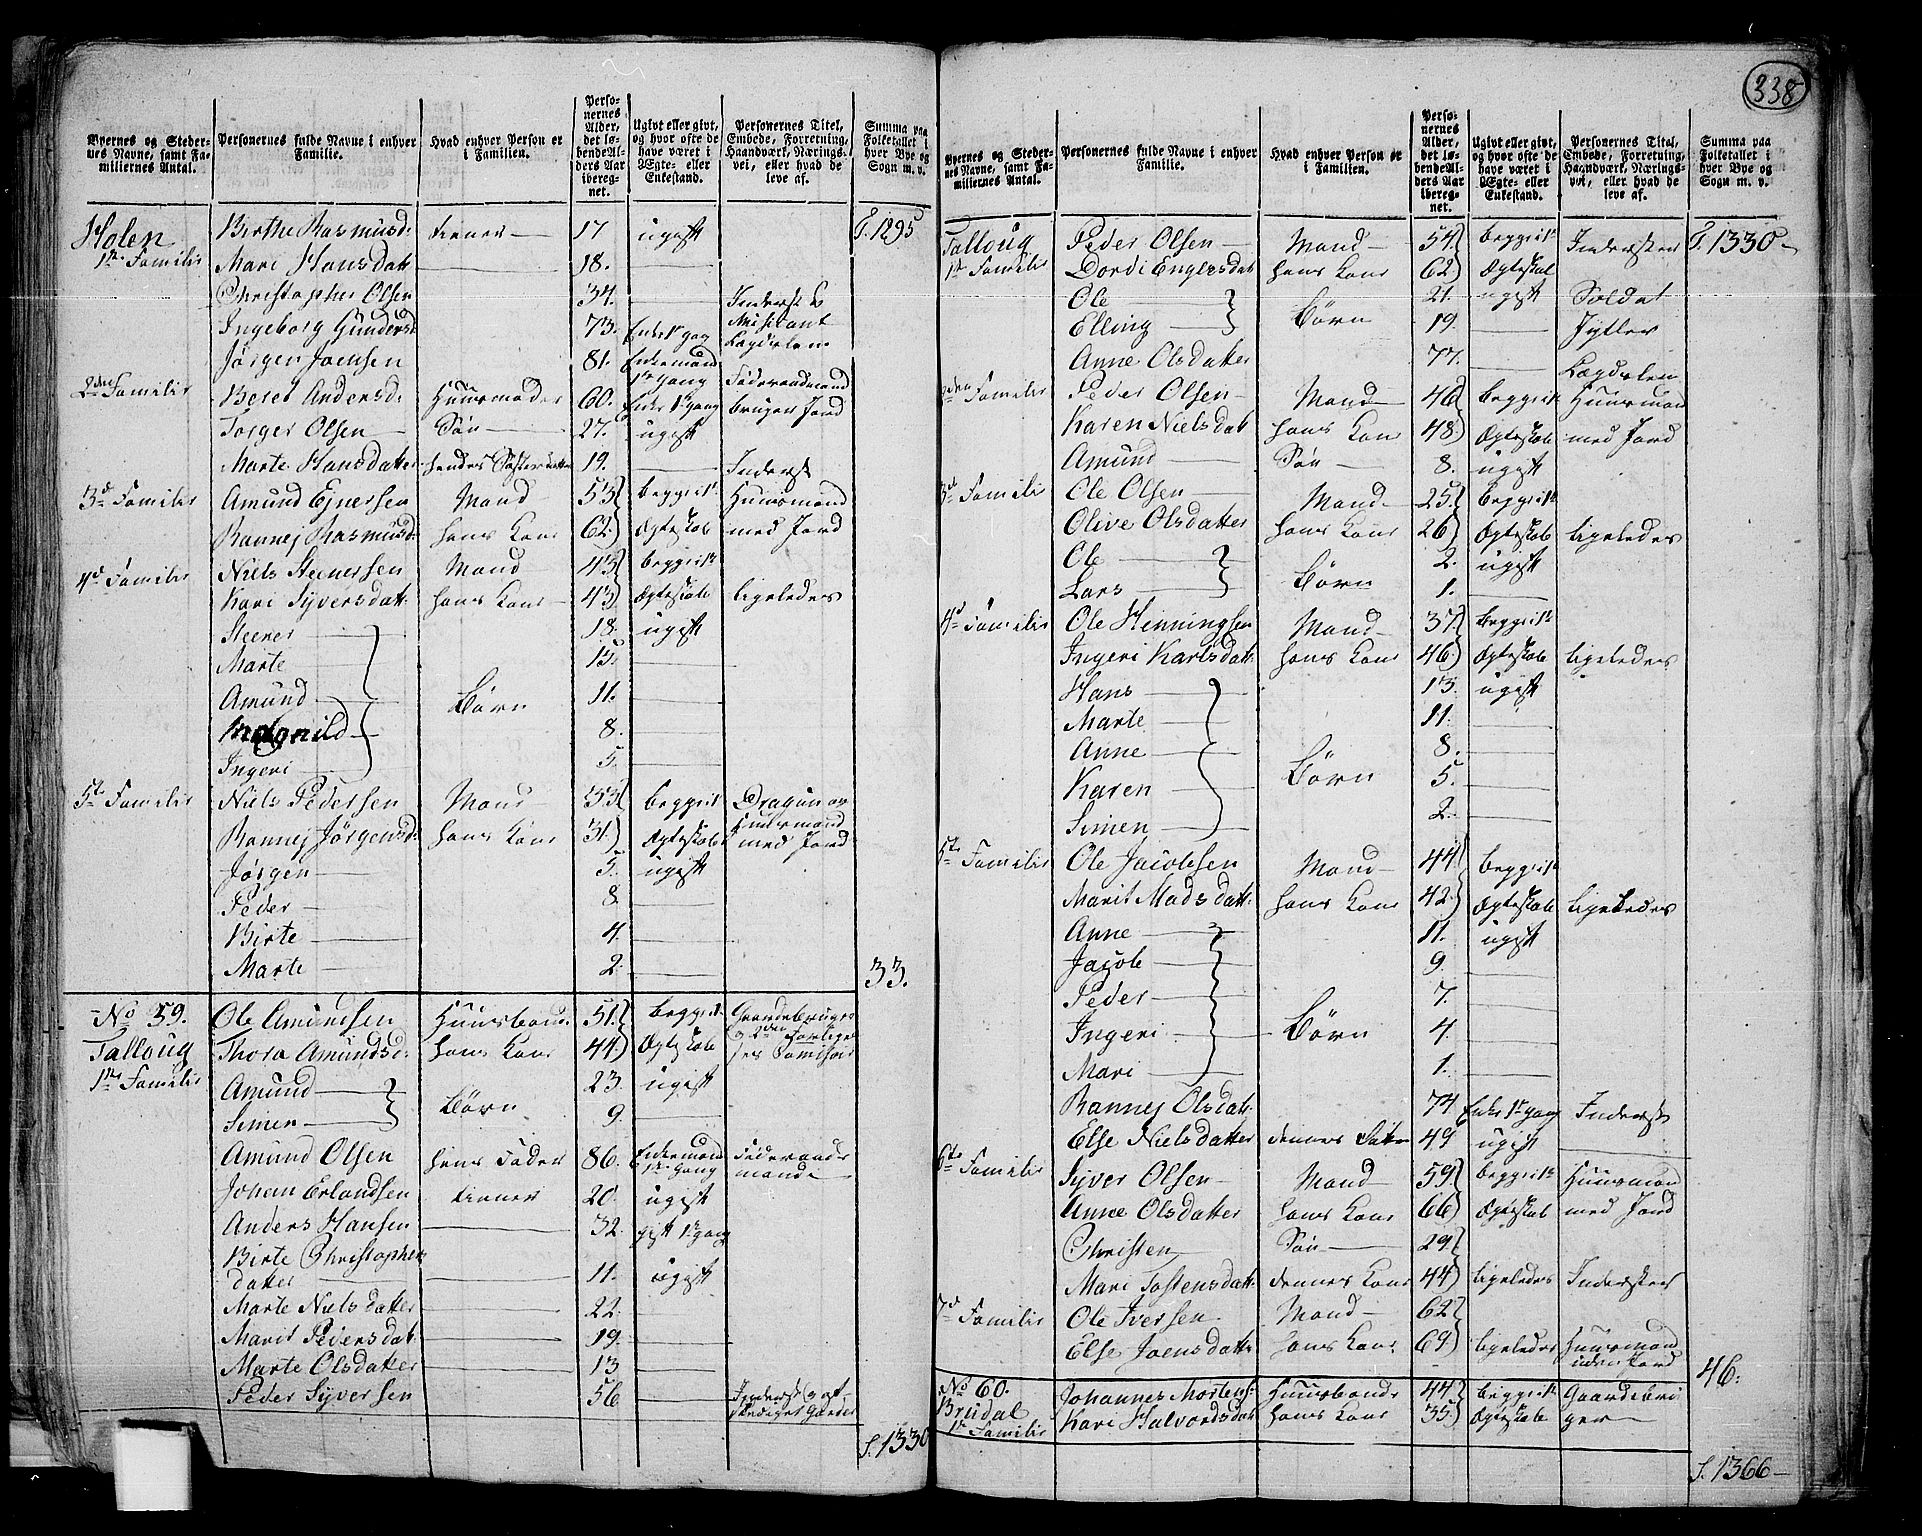 338
Byernes og Stedernes Navne, samt Familiernes Antal.
Personernes fulde Navne i enhver Familie.
Hvad enhver Person er i Familien.
Personernes Alder, det løbende Alders Aar iberegnet.
Ugivt eller givt, og hvor ofte de have været i Ægte- eller Enkestand.
Personernes Titel, Embede, Forretning, Haandværk, Næringsvei, eller hvad de leve af.
Summa paa Folketallet i hver Bye og Sogn m. v.
Holen Birthe Rasmusd: tiener 17 ugift T. 1295
1te Familie Mari Hansdatt 18.
Christopher Olsen 34. Inderst &
Ingeborg Gundersd 73. Enke 1te gang Musicant Lægdslem
Jørgen Joensen 81. Enkemand 1te gang Føderaadmand
2den Familie Beret Andersd: Huusmoder 60. Enke 1te gang bruger Jord
Torger Olsen Søn 27. ugift
Marte Hansdatter hendes Søsterdatter 19. Inderst
3d Familie Amund Ejnersen Mand 53 begge i 1te Huusmand
Rannej Rasmusd: hans Kone 62 Ægteskab med Jord
4d Familie Niels Steenersen Mand 43 begge i 1te
Kari Syversdatt: hans Kone 43 Ægteskab ligeledes
Steener 18. ugift
Marte 15.
Amund Børn 11.
8.
Ingeri 5.
5te Familie Niels Pedersen Mand 33 begge i 1te Dragun og
Rannej Jørgensd: hans Kone 31 Ægteskab Huusmand med Jord
Jørgen 5. ugift
Peder 8.
Birte 4.
Marte 2. 33.
No 59. Ole Amundsen Huusbond: 51. begge i 1te Gaardebruger
Talloug Thora Amundsd: hans Kone 44 Ægteskab
1te Familie Amund 23. ugift
Simen Børn 9.
Amund Olsen hans Fader 86. Enkemand 1te gang Føderaads mand
Johan Erlandsen tiener 20. ugift
Anders Hansen 32. gift 1te gang
Birte Christophersdatter 11. ugift
Marte Nielsdatter 22.
Marit Pedersdat: 19.
Marte Olsdatter 13
Peder Syversen 56 Inderst
S. 1330
Byernes og Stedernes Navne, samt Familiernes Antal.
Personernes fulde Navne i enhver Familie.
Hvad enhver Person er i Familien.
Personernes Alder, det løbende Alders Aar iberegnet.
Ugivt eller givt, og hvor ofte de have været i Ægte- eller Enkestand.
Personernes Titel, Embede, Forretning, Haandværk, Næringsvei, eller hvad de leve af.
Summa paa Folketallet i hver Bye og Sogn m. v.
Talloug Peder Olsen Mand 54 begge i 1te Inderster T. 1330
1te Familie Dordi Engersdat hans Kone 62 Ægteskab
Ole Børn 21. ugift Soldat
Elling 19. Jytler
Anne Olsdatter 77. Lægdslem
2den Familie Peder Olsen Mand 46 begge i 1te Huusmand
Karen Nielsdat hans Kone 48 Ægteskab med Jord
Amund Søn 8. ugift
3d Familie Ole Olsen Mand 25 begge i 1te
Olive Olsdatter hans Kone 26 Ægteskab ligeledes
Ole 2. ugift
Lars Børn 1.
4d Familie Ole Henningsen Mand 37 begge i 1te
Ingeri Karlsdatt: hans Kone 46 Ægteskab ligeledes
Hans 13. ugift
Marte 11.
Anne 8.
Karen Børn 5.
Simen 2.
5te Familie Ole Jacobsen Mand 44 begge i 1te
Marit Madsdatt: hans Kone 42 Ægteskab ligeledes
Anne 11. ugift
Jacob 9.
Peder 7.
Ingeri Børn 4.
Mari 1.
Rannej Olsdatt: 74 Enke 1te gang Inderst
Else Nielsdatter dennes Datter 49 ugift
6te Familie Syver Olsen Mand 59 begge i 1te Huusmand
Anne Olsdatter hans Kone 66 Ægteskab med Jord
Christen Søn 29
Mari Tostensdatt: dennes Kone 44 ligeledes Inderster
7d Familie Ole Iversen Mand 62
Else Joensdatt: hans Kone 69 ligeledes Huusmand uden Jord
46.
No 60. Johannes Mortens: Huusbonde 44 begge i 1te Gaardebru
Brudal Kari Halvordsdatt hans Kone 35 Ægteskab ger
1te Familie
S. 1366